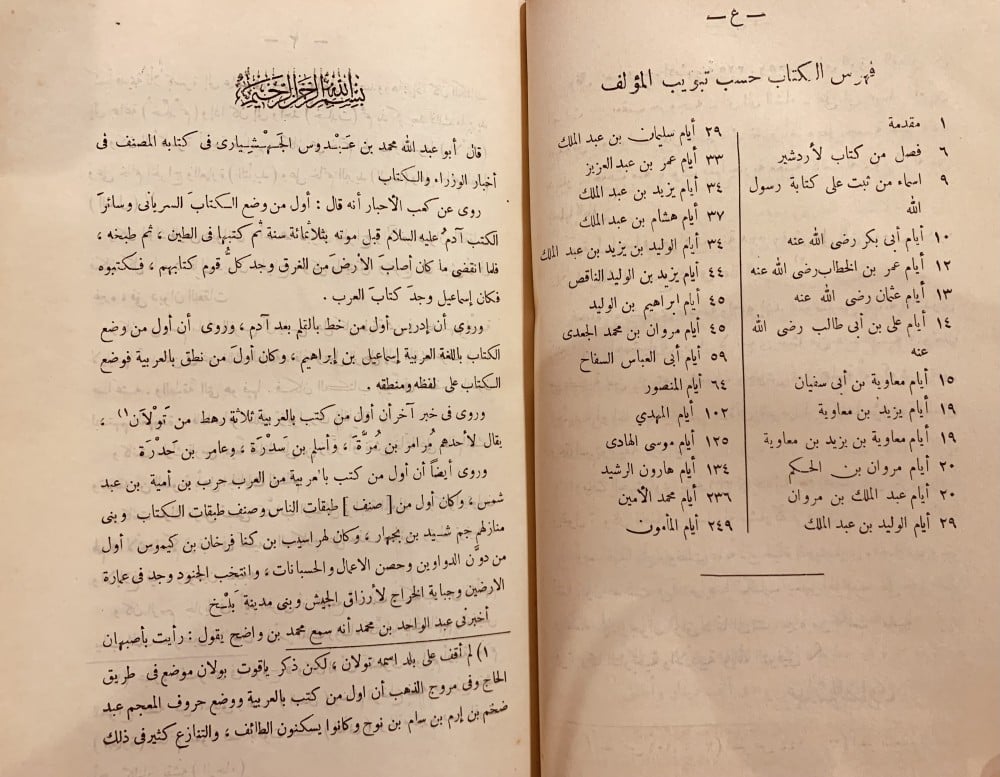 — ع —
فهرس الكتاب حسب تبويب المؤلف
١ مقدمة
٦ فصل من كتاب لأردشير
٩ اسماء من ثبت على كتابة رسول
الله
١٠ أيام أبى بكر رضى الله عنه
١٢ أيام عمر بن الخطاب رضى الله عنه
١٣ أيام عثمان رضى الله عنه
١٤ أيام على بن أبى طالب رضى الله
عنه
١٥ أيام معاوية من أبى سفيان
١٩ أيام يزيد بن معاوية
١٩ أيام معاوية بن يزيد بن معاوية
٢٠ أيام مروان بن الحكم
٢٠ أيام عبد الملك بن مروان
٢٩ أيام الوليد بن عبد الملك
٢٩ أيام سليمان بن عبد الملك
٣٣ أيام عمر بن عبد العزيز
٣٤ أيام يزيد بن عبد الملك
٣٧ أيام هشام بن عبد الملك
٣٤ أيام الوليد بن يزيد بن عبد الملك
٤٤ أيام يزيد بن الوليد الناقص
٤٥ أيام ابراهيم بن الوليد
٤٥ أيام مروان بن محمد الجعدى
٥٩ أيام أبى العباس السفاح
٦٤ أيام المنصور
١٠٢ أيام المهدي
١٢٥ أيام موسى الهادى
١٣٤ أيام هارون الرشيد
٢٣٦ أيام محمد الأمين
٢٤٩ أيام المأمون
بسم الله الرحمن الرحيم
قال أبو عبد الله محمد بن عَبْدوس الجَهْشِيارى فى كتابه المصنف فى
أخبار الوزراء والكتاب
روى عن كعب الأحبار أنه قال : أول من وضع الكتابَ السريانى وسائرَ
الكتب آدمُ عليه السلام قبل موته بثلاثمائة سنة ثم كتبها فى الطين ، ثم طبخه ،
فلما انقضى ما كان أصابَ الأرضَ من الغرق وجد كلُّ قوم كتابهم ، فكتبوه
فكان إسماعيل وجدَ كتابَ العرب .
وروى أن إدريس أول من خط بالقلم بعد آدم ، وروى أن أول من وضع
الكتاب باللغة العربية إسماعيل بن إبراهيم ، وكان أولَ من نطق بالعربية فوضع
الكتاب على لفظه ومنطقه .
وروى فى خبر آخر أن أول من كتب بالعربية ثلاثة رهط من تَوْلَان (١) ،
يقال لأحدهم مُرامر بن مُرَّة ، وأسلم بن سَدْرَة ، وعامر بن جَدْرَة
وروى أيضاً أن أول من كتب بالعربية من العرب حرب بن أمية بن عبد
شمس ، وكان أول من [ صنف ] طبقات الناس وصنف طبقات الكتاب وبنى
منازلهم جم شيد بن يجهار ، وكان لهراسيب بن كنا فرخان بن كيموس ، أول
من دوَّن الدواوين وحصن الاعمال والحسبانات ، وانتخب الجنود وجد فى عمارة
الارضين وجباية الخراج لأرزاق الجيش وبنى مدينة بَلْخ
أخبرنى عبد الواحد بن محمد أنه سمع محمد بن واضح يقول : رأيت بأصبهان
١) لم أقف على بلد اسمه تولان ، لكن ذكر ياقوت بولان موضع فى طريق
الحاج وفى مروج الذهب أن اول من كتب بالعربية ووضع حروف المعجم عبد
ضخم بن إرم بن سام بن نوح وكانوا يسكنون الطائف ، والتنازع كثير فى ذلك